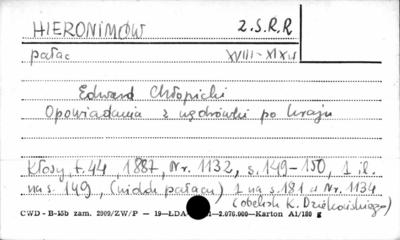 HIERONIMÓW Z.S.R.R
pałac XVIII-XIX w
Edward Chłopicki
Opowiadania z wędrówki po kraju
Kłosy, t.44, 1887, Nr. 1132, s. 149-150, 1 il.
na s. 149 (widok pałacu) 1 na s. 181 w Nr. 1134
(obelisk K. Dziekońskiego)
CWD - B-15b zam. 2009/ZW/P — 19—ŁDA 2.076.000—Karton A1/180 g